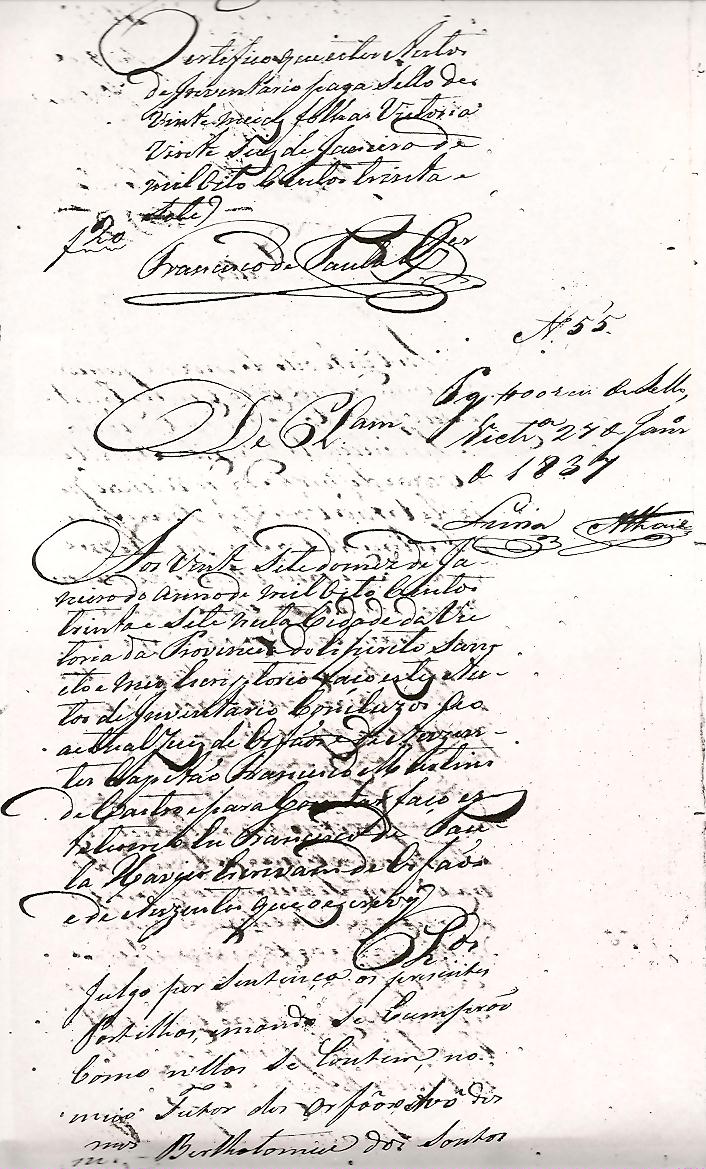 Certifico que estes Autos
de Inventario paga Sello de
vinte meias folhas Victoria
vinte Seis de Janeiro de
mil oito Centos trinta e
sete
Francisco de Paula Xer
Nº 55
Pg de Sello
Victª 27 de Janrº
de 1837
De Clam
Aos vinte Sete do mez de Ja-
neiro do anno de mil oito Centos
trinta e Sete nesta Cidade da Vic
toria da Provincia do Espirito San
to e meu Escriptorio faço estes Au-
tos de Inventario Concluzos ao
actual Juiz de Orfãos e Auzen-
tes Capitão Francisco Martins
de Castro e para Constar faço es
te termo Eu Francisco de Pau-
la Xavier Escrivam de Orfãos
e de Auzentes que o escrevy
Clos
Julgo por Sentença as presentes
Partilhas, mando se Cumprão
Como nellas se Contem, no-
meio Tutor dos orfãos Avô dos
mmos Bertholomeu dos Santos